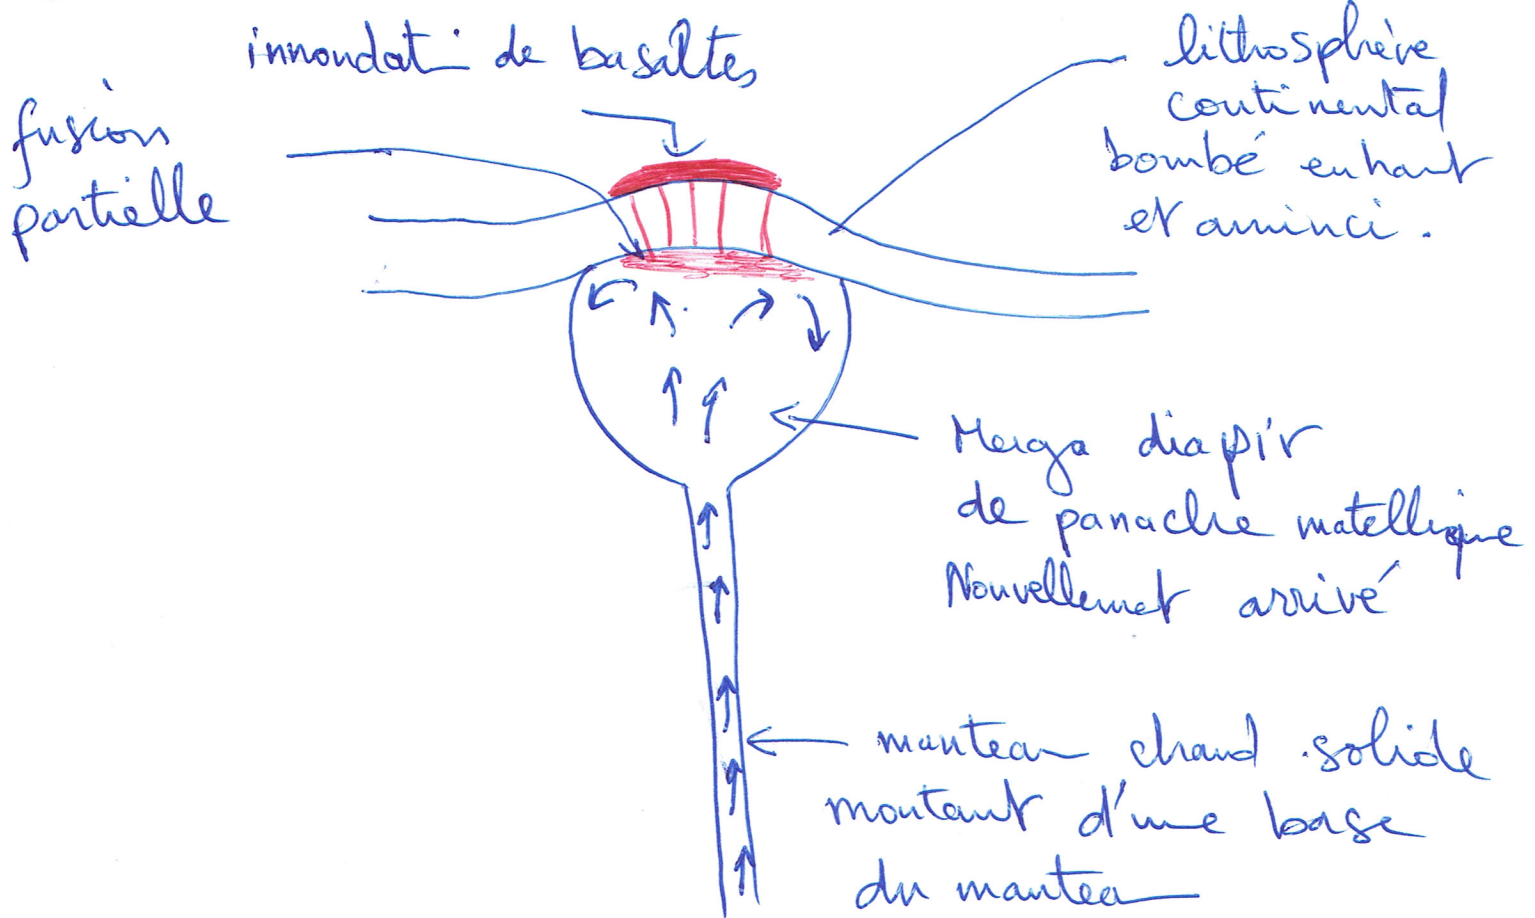 innondat° de basaltes
fusion
partielle
lithosphère
continental
bombé en haut
et aminci.
Mega diapir
de panache matellique
Nouvellemet arrivé
manteau chaud solide
montant d'une base
du manteau